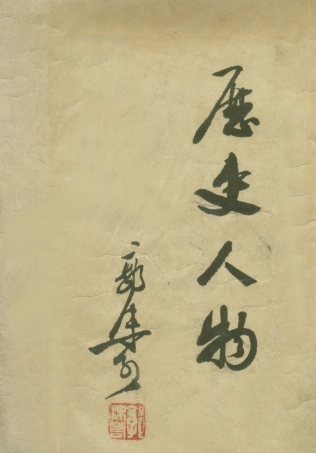 歷史人物
郭沫若